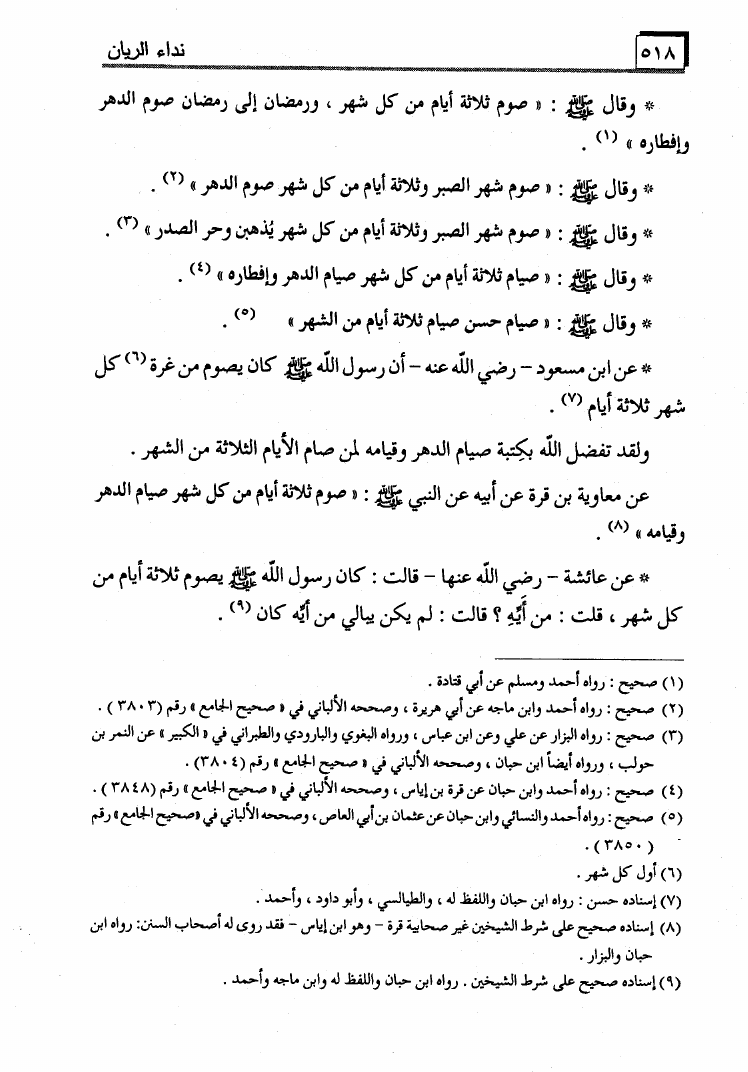 ٥١٨ نداء الريان
* وقال ﷺ : « صوم ثلاثة أيام من كل شهر ، ورمضان إلى رمضان صوم الدهر
وإفطاره » (١) .
* وقال ﷺ : « صوم شهر الصبر وثلاثة أيام من كل شهر صوم الدهر » (٢) .
* وقال ﷺ : « صوم شهر الصبر وثلاثة أيام من كل شهر يُذهبن وحر الصدر » (٣) .
* وقال ﷺ : « صيام ثلاثة أيام من كل شهر صيام الدهر وإفطاره » (٤) .
* وقال ﷺ : « صيام حسن صيام ثلاثة أيام من الشهر » (٥) .
* عن ابن مسعود – رضي الله عنه – أن رسول الله ﷺ كان يصوم من غرة (٦) كل
شهر ثلاثة أيام (٧) .
ولقد تفضل الله بكتبة صيام الدهر وقيامه لمن صام الأيام الثلاثة من الشهر .
عن معاوية بن قرة عن أبيه عن النبي ﷺ : « صوم ثلاثة أيام من كل شهر صيام الدهر
وقيامه » (٨) .
* عن عائشة – رضي الله عنها – قالت : كان رسول الله ﷺ يصوم ثلاثة أيام من
كل شهر ، قلت : من أَيِّهِ ؟ قالت : لم يكن يبالي من أيِّه كان (٩) .
(١) صحيح : رواه أحمد ومسلم عن أبي قتادة .
(٢) صحيح : رواه أحمد وابن ماجه عن أبي هريرة ، وصححه الألباني في « صحيح الجامع » رقم (٣٨٠٣) .
(٣) صحيح : رواه البزار عن علي وعن ابن عباس ، ورواه البغوي والبارودي والطبراني في « الكبير » عن النمر بن
حولب ، ورواه أيضاً ابن حبان ، وصححه الألباني في « صحيح الجامع » رقم (٣٨٠٤) .
(٤) صحيح : رواه أحمد وابن حبان عن قرة بن إياس ، وصححه الألباني في « صحيح الجامع » رقم (٣٨٤٨) .
(٥) صحيح : رواه أحمد والنسائي وابن حبان عن عثمان بن أبي العاص ، وصححه الألباني في « صحيح الجامع » رقم
(٣٨٥٠) .
(٦) أول كل شهر .
(٧) إسناده حسن : رواه ابن حبان واللفظ له ، والطيالسي ، وأبو داود ، وأحمد .
(٨) إسناده صحيح على شرط الشيخين غير صحابية قرة – وهو ابن إياس – فقد روى له أصحاب السنن: رواه ابن
حبان والبزار .
(٩) إسناده صحيح على شرط الشيخين . رواه ابن حبان واللفظ له وابن ماجه وأحمد .